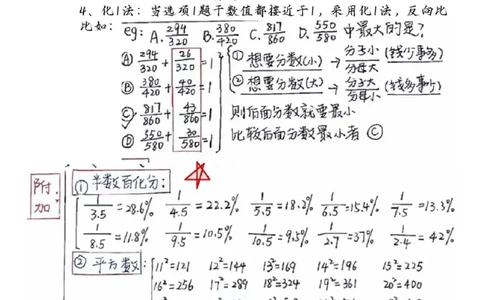 4、化1法：当选项1题干数值都接近于1，采用化1法，反向比
比如：eg: A. 294/320 B. 380/420 C. 817/860 D. 550/580 中最大的是？
Ⓐ 294/320 + 26/320 = 1
Ⓑ 380/420 + 40/420 = 1
Ⓒ 817/860 + 43/860 = 1
Ⓓ 550/580 + 30/580 = 1
① 想要分数(小) → 分子小/分母大 (钱少事多)
② 想要分数(大) → 分子大/分母小 (钱多事少)
则后面分数就要最小
比较后面分数最小者 Ⓒ
附加：
① 半数百化分：
1/3.5 = 28.6% 1/4.5 = 22.2% 1/5.5 = 18.2% 1/6.5 = 15.4% 1/7.5 = 13.3%
1/8.5 = 11.8% 1/9.5 = 10.5% 1/10.5 = 9.5% 1/2.7 = 37% 1/2.4 = 42%
② 平方数：11²=121 12²=144 13²=169 14²=196 15²=225
16²=256 17²=289 18²=324 19²=361 20²=400